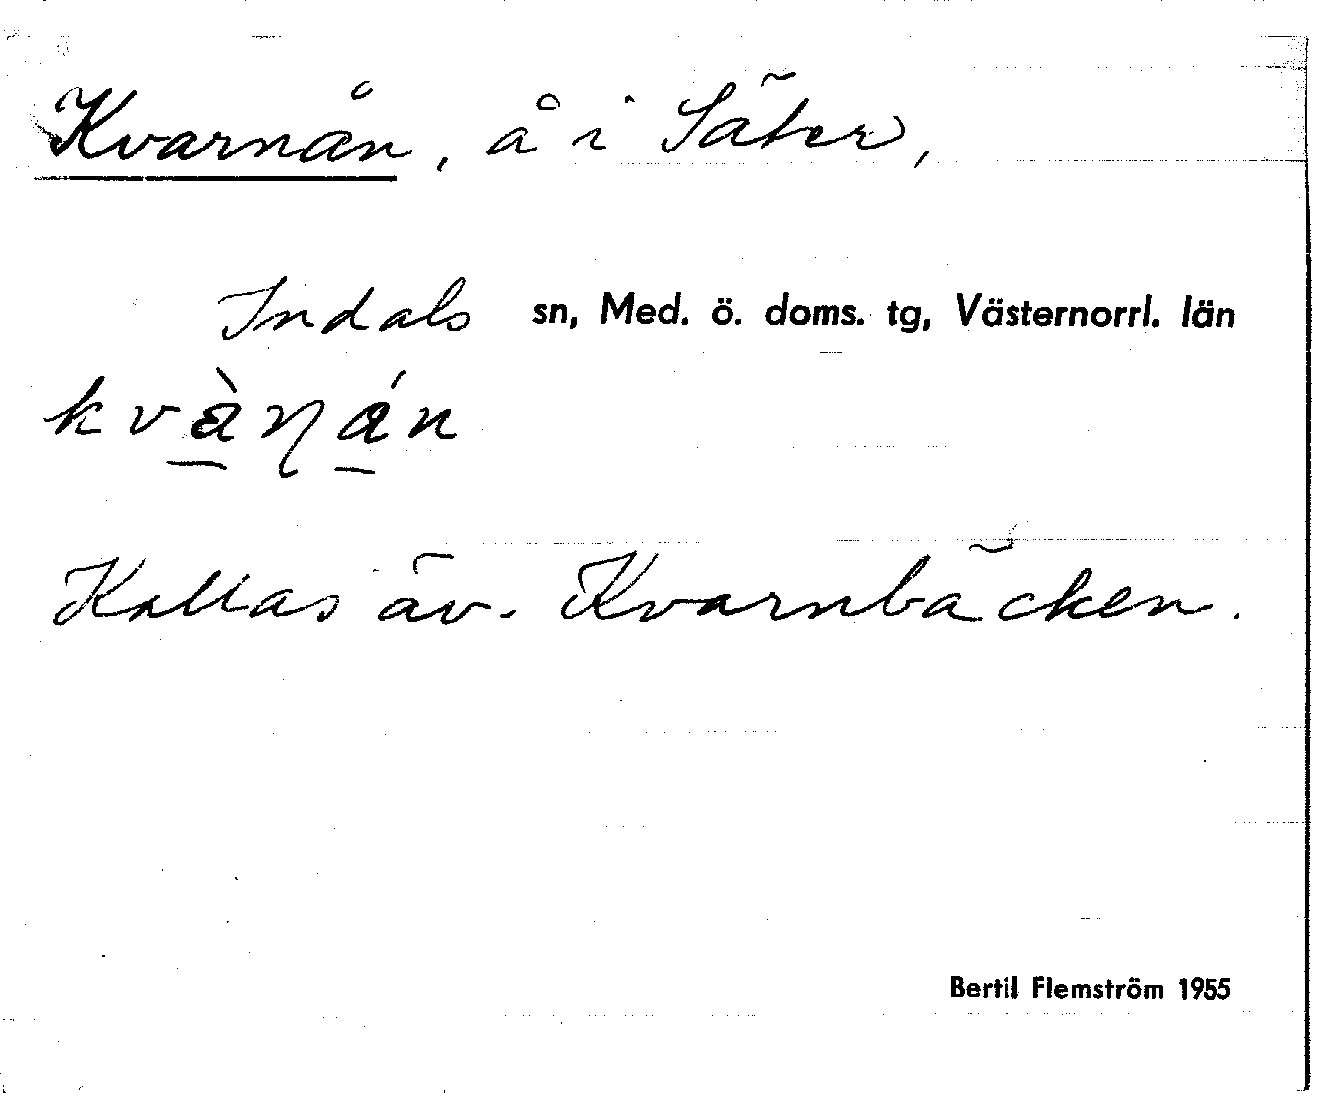 Kvarnån, å i Säter,
Indals sn, Med. ö. doms. tg, Västernorrl. län
kvà̱ɳá̱n
Kallas äv. Kvarnbäcken.
Bertil Flemström 1955